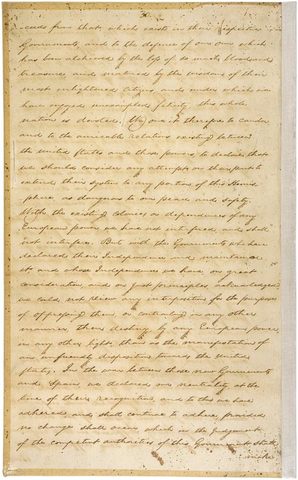 ceeds from that, which exists in their respective
Governments, and to the defence of our own, which
has been atchieved by the loss of so much blood and
treasure, and matured by the wisdom of their
most enlightened citizens, and under which we
have enjoyed unexampled felicity, this whole
nation is devoted. We owe it therefore to candor
and to the amicable relations existing between
the United States and those powers, to declare that
we should consider any attempt on their part to
extend their system to any portion of this Hemis
phere as dangerous to our peace and safety.
With the existing Colonies or dependencies of any
European power, we have not interfered, and shall
not interfere. But with the Governments who have
declared their Independence, and maintained
it, and whose Independence we have, on great
consideration, and on just principles, acknowledged
we could not view any interposition for the purpose
of oppressing them, or controuling in any other
manner, their destiny, by any European power,
in any other light, than as the manifestation of
an unfriendly disposition towards the United
States. In the war between those new Governments
and Spain, we declared our neutrality, at the
time of their recognition, and to this we have
adhered, and shall continue to adhere, provided
no change shall occur, which in the judgement
of the competent authorities of this Government, shall
make